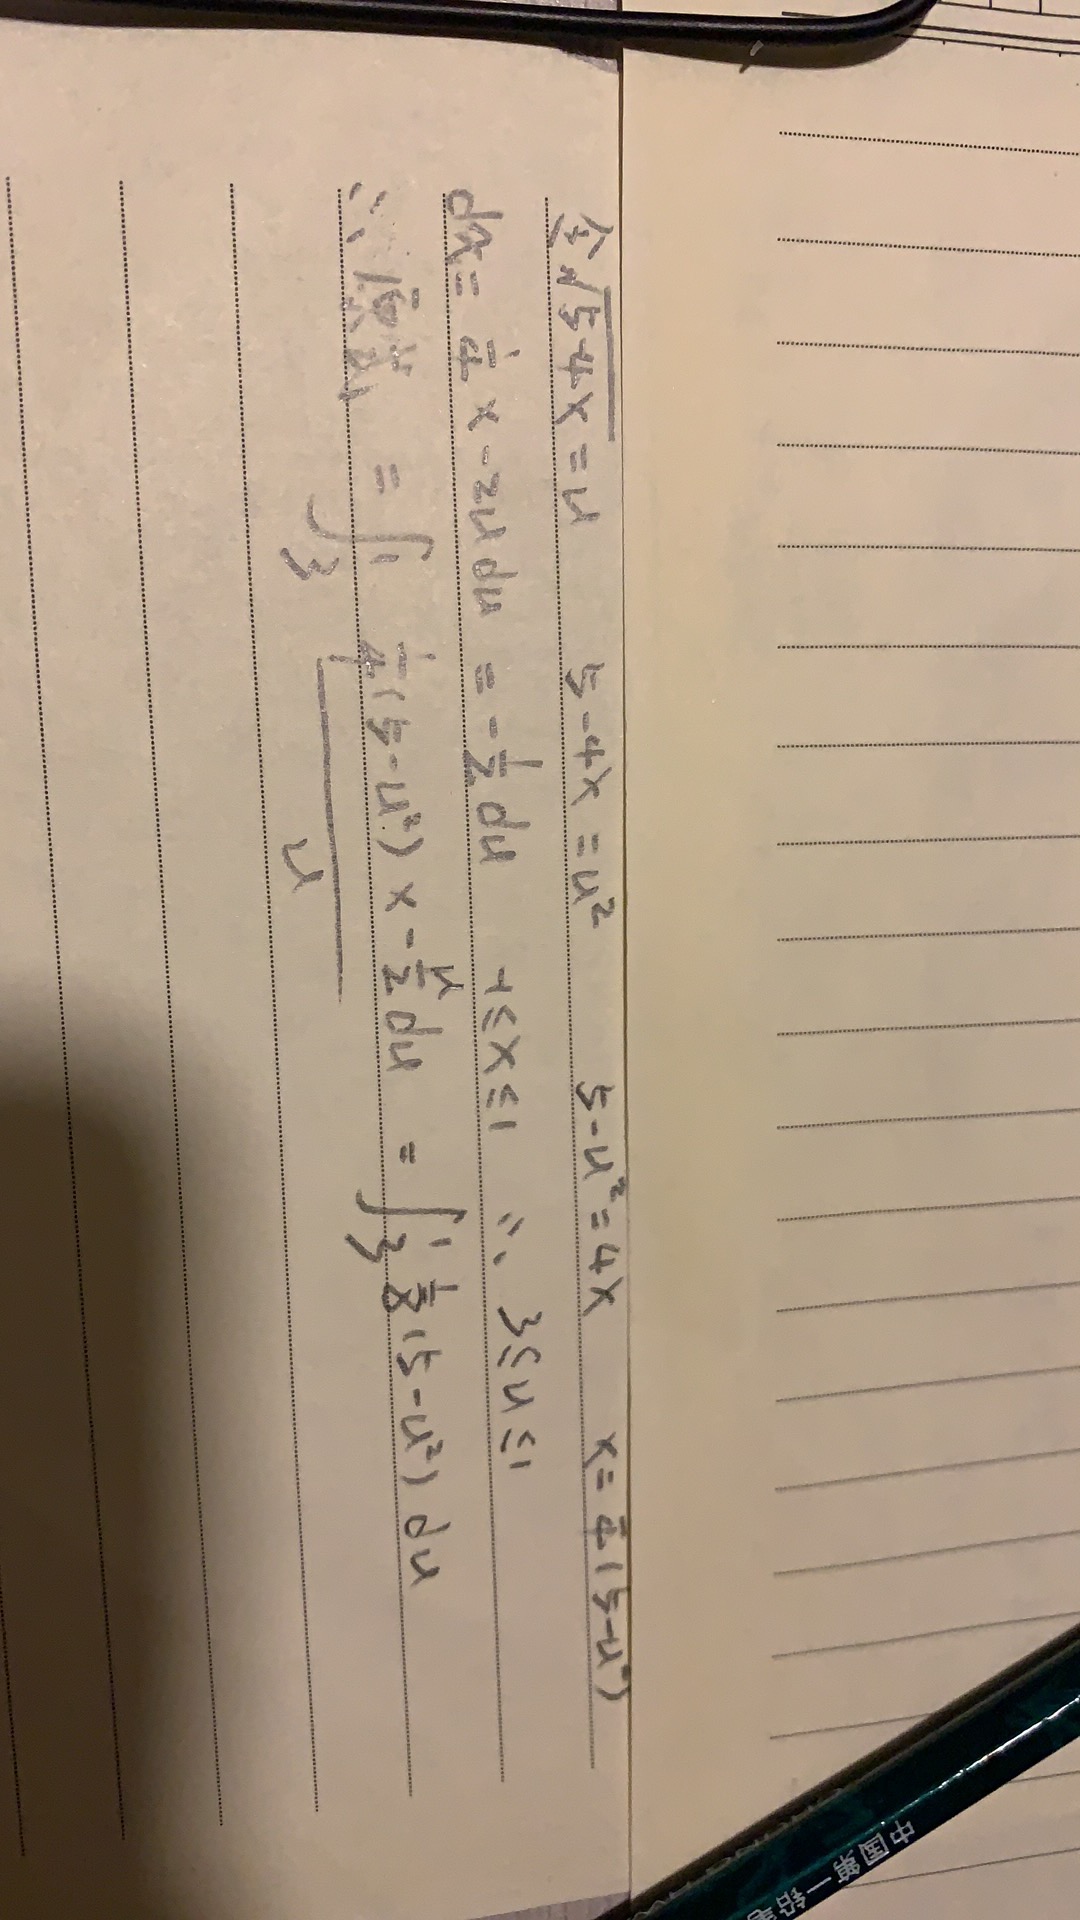 令√5-4x = u 5-4x = u² 5-u² = 4x x = 1/4(5-u²)
dx = 1/4 x -2u du = -1/2 du -1≤x≤1 ∴ 3≤u≤1
∴ 原式 = ∫₃¹ (1/4(5-u²) x -u/2 du)/u = ∫₃¹ 1/8(5-u²) du
中国第一铅笔